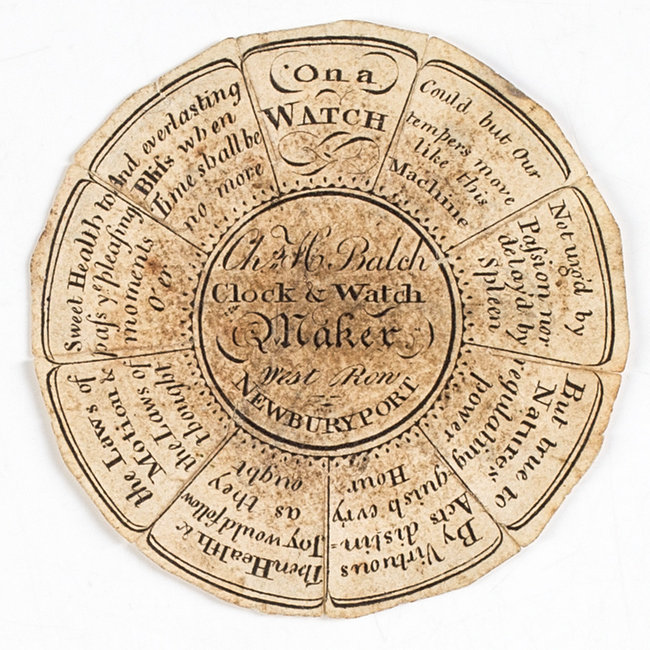 On a
WATCH
Could but Our
tempers move
like this
Machine
Not urg'd by
Paſsion nor
delay'd by
Spleen
But true to
Nature's
regulating
power
By Virtuous
Acts distin=
guish ev'ry
Hour
Then Health &
Joy would follow
as they
ought
the Laws of
Motion &
the Laws of
thought
Sweet Health to
paſs yᵉ pleaſing
moments
o'er
And everlasting
Bliſs when
Time shall be
no more
Chˢ H Balch
Clock & Watch
Maker
West Row
NEWBURYPORT